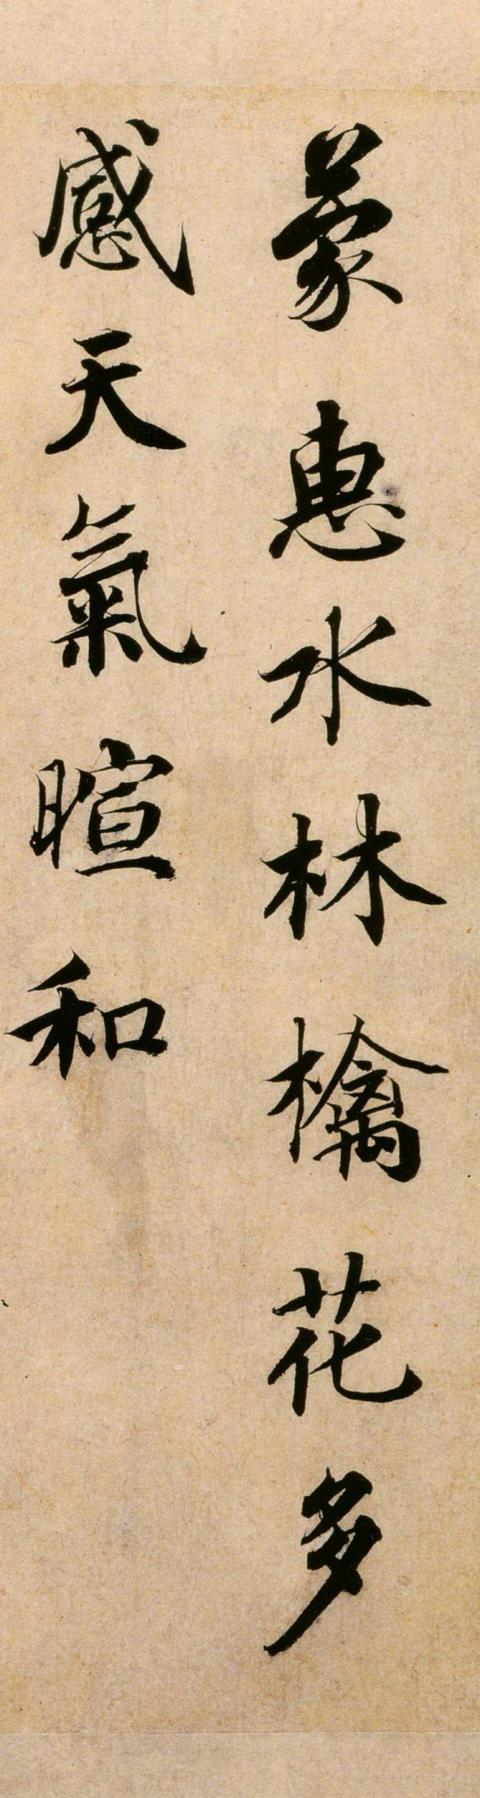 蒙惠水林檎花多
感天氣暄和